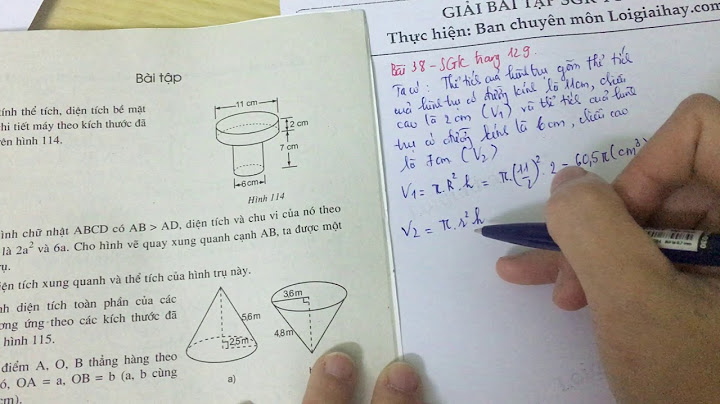 Bài tập
tính thể tích, diện tích bề mặt
chi tiết máy theo kích thước đã
trên hình 114.
11 cm
2 cm
7 cm
6cm
Hình 114
hình chữ nhật ABCD có AB > AD, diện tích và chu vi của nó theo
là 2a² và 6a. Cho hình vẽ quay xung quanh cạnh AB, ta được một
trụ.
diện tích xung quanh và thể tích của hình trụ này.
diện tích toàn phần của các
ương ứng theo các kích thước đã
hình 115.
5,6m
2,5m
a)
3,6m
4,8m
điểm A, O, B thẳng hàng theo
đó, OA = a, OB = b (a, b cùng
cm).
GIẢI BÀI TẬP SGK
Thực hiện: Ban chuyên môn Loigiaihay.com
Bài 38 - SGK trang 129.
Ta có: Thể tích của hình trụ gồm thể tích
của hình trụ có đường kính là 11cm, chiều
cao là 2cm (V₁) và thể tích của hình
trụ có đường kính là 6cm, chiều cao
là 7cm (V₂)
V₁ = π.R².h = π.(11/2)².2 = 60,5π (cm³)
V₂ = π.r²h